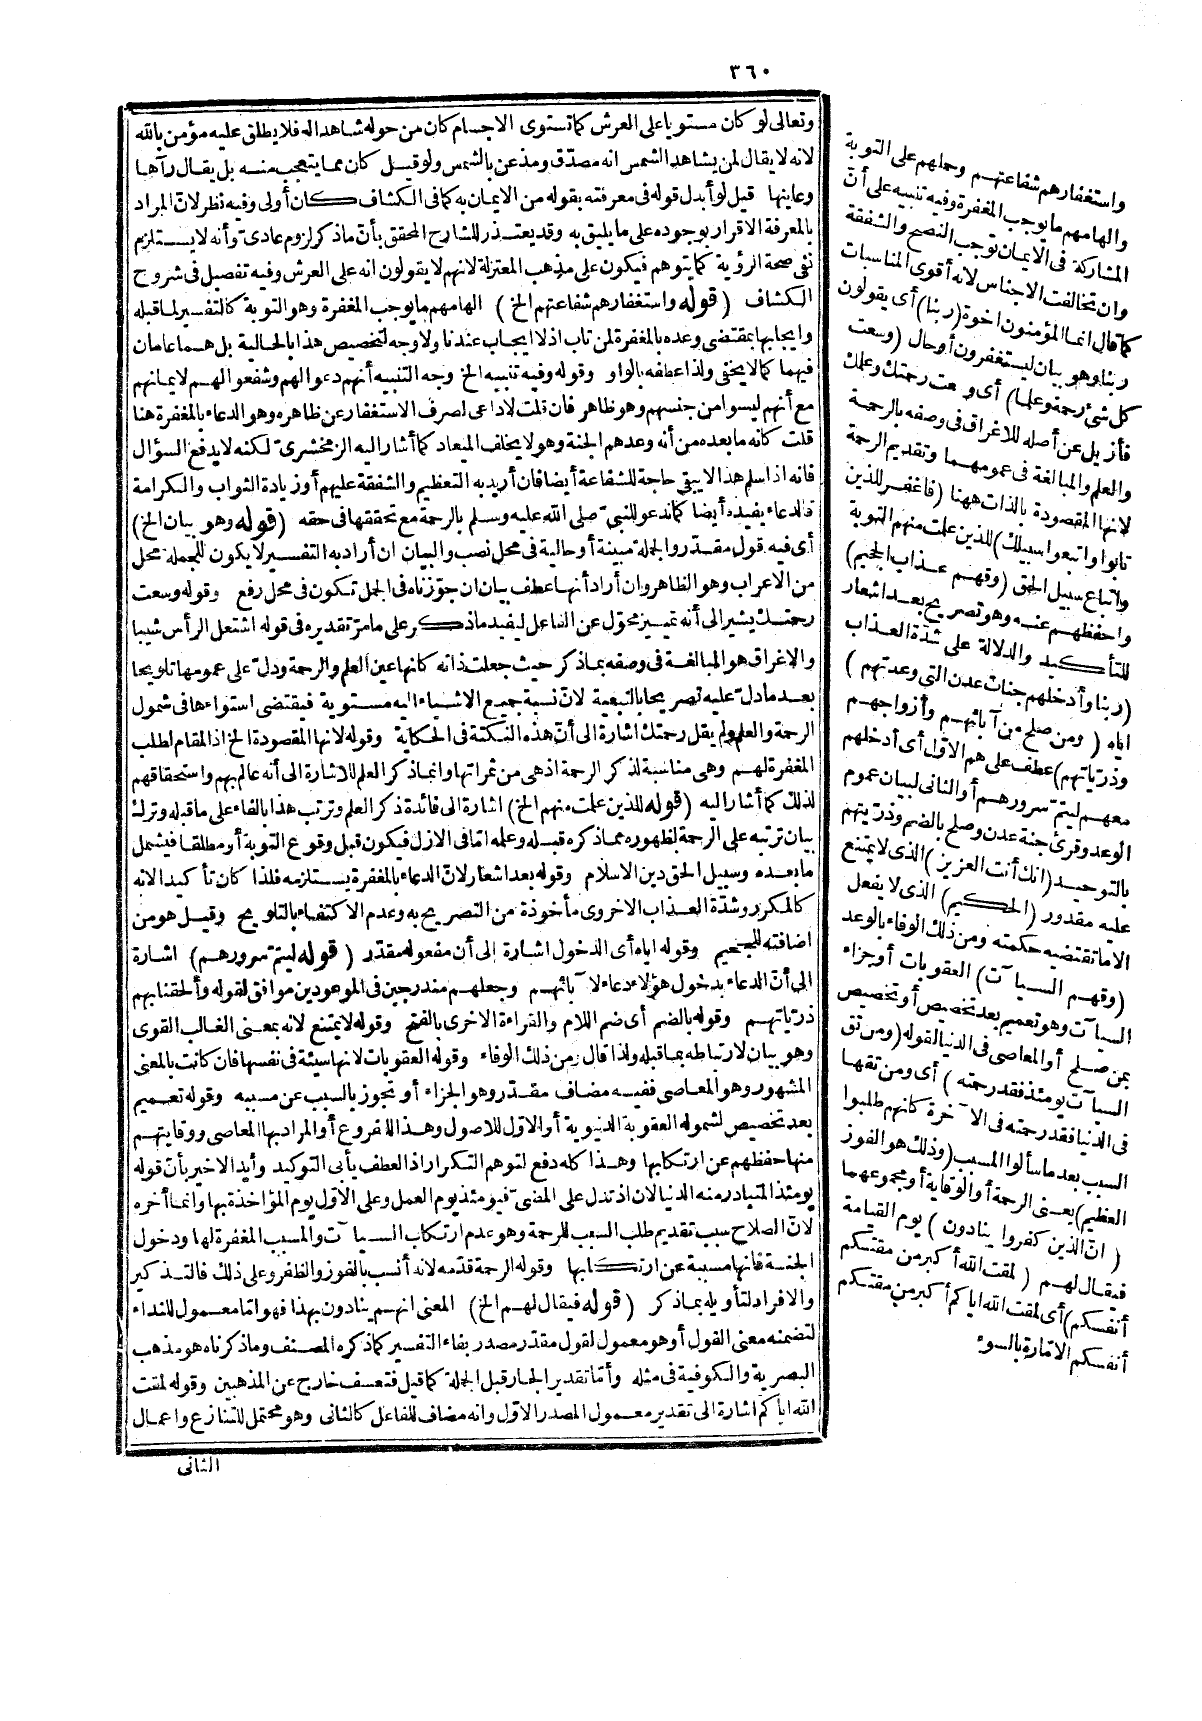 ٣٦٠
وتعالى لو كان مستويا على العرش كما تستوى الاجسام كان من حوله شاهد اله فلا يطلق عليه مؤمن بالله
لانه لا يقال لمن يشاهد الشمس انه مصدّق ومذعن بالشمس ولو قيل كان مما يتعجب منه بل يقال رآها
وعاينها قيل لو أبدل قوله فى معرفته بقوله من الايمان به كما فى الكشاف كان أولى وفيه نظر لانّ المراد
بالمعرفة الاقرار بوجوده على ما يليق به وقد يعتذر للشارح المحقق بأنّ ما ذكر لزوم عادىّ وأنه لا يستلزم
نفى صحة الرؤية كما يتوهم فيكون على مذهب المعتزلة لانهم لا يقولون انه على العرش وفيه تفصيل فى شروح
الكشاف (قوله واستغفارهم شفاعتهم الخ) الهامهم ما يوجب المغفرة وهو التوبة كالتفسير لما قبله
وايجابها بمقتضى وعده بالمغفرة لمن تاب اذ لا ايجاب عندنا ولا وجه لتخصيص هذا بالحالية بل هما عامان
فيهما كما لا يخفى ولذا عطفه بالواو وقوله وفيه تنبيه الخ وجه التنبيه أنهم دعوا لهم وشفعوا لهم لايمانهم
مع أنهم ليسوا من جنسهم وهو ظاهر فان قلت لا داعى لصرف الاستغفار عن ظاهره وهو الدعاء بالمغفرة هنا
قلت كانه ما بعده من أنه وعدهم الجنة وهو لا يخلف الميعاد كما أشار اليه الزمخشرى لكنه لا يدفع السؤال
فانه اذا سلم هذا لا يبقى حاجة للشفاعة أيضا فان أريد به التعظيم والشفقة عليهم أو زيادة الثواب والكرامة
فالدعاء يفيده أيضا كما ندعو للنبىّ صلى الله عليه وسلم بالرحمة مع تحققها فى حقه (قوله وهو بيان الخ)
أى فيه قول مقدّر والجملة مبينة أو حالية فى محل نصب والبيان ان أراد به التفسير لا يكون للجملة محل
من الاعراب وهو الظاهر وان أراد أنها عطف بيان ان جوّزناه فى الجمل تكون فى محل رفع وقوله وسعت
رحمتك يشير الى أنه تمييز محوّل عن الفاعل ليفيد ما ذكر على ما مرّ تقديره فى قوله اشتعل الرأس شيبا
والاغراق هو المبالغة فى وصفه بما ذكر حيث جعلت ذاته كانها عين العلم والرحمة ودلّ على عمومها تلويحا
بعد ما دلّ عليه تصريحا بالتبعية لانّ نسبة جميع الاشياء اليه مستوية فيقتضى استواءها فى شمول
الرحمة والعلم ولم يقل رحمتك اشارة الى أنّ هذه النكتة فى الحكاية وقوله لانها المقصودة الخ اذ المقام لطلب
المغفرة لهم وهى مناسبة لذكر الرحمة اذ هى من ثمراتها وانما ذكر العلم للاشارة الى أنه عالم بهم واستحقاقهم
لذلك كما أشار اليه (قوله للذين علمت منهم الخ) اشارة الى فائدة ذكر العلم وترتب هذا بالفاء على ما قبله وترك
بيان ترتبه على الرحمة لظهوره مما ذكره قبله وعلمه امّا فى الازل فيكون قبل وقوع التوبة أو مطلقا فيشمل
ما بعده وسبيل الحق دين الاسلام وقوله بعد اشعار لانّ الدعاء بالمغفرة يستلزمه فلذا كان تأكيدا لانه
كالمكرر وشدّة العذاب الاخروى مأخوذة من التصريح به وعدم الاكتفاء بالتلويح وقيل هو من
اضافته للجحيم وقوله اياه أى الدخول اشارة إلى أن مفعوله مقدّر (قوله ليتم سرورهم) اشارة
الى أنّ الدعاء بدخول هؤلاء دعاء لآبائهم وجعلهم مندرجين فى الموعودين موافق لقوله وألحقنا بهم
ذرّياتهم وقوله بالضم أى ضم اللام والقراءة الاخرى بالفتح وقوله لا يمتنع لانه بمعنى الغالب القوى
وهو بيان لارتباطه بما قبله ولذا قال من ذلك الوفاء وقوله العقوبات لانها سيئة فى نفسها فان كانت بالمعنى
المشهور وهو المعاصى ففيه مضاف مقدّر وهو الجزاء أو تجوز بالسبب عن مسببه وقوله تعميم
بعد تخصيص لشموله العقوبة الدنيوية أو الاول للاصول وهذا للفروع أو المراد بها المعاصى ووقايتهم
منها حفظهم عن ارتكابها وهذا كله دفع لتوهم التكرار اذ العطف يأبى التوكيد وأيد الاخير بأنّ قوله
يومئذ المتبادر منه الدنيا لان اذ تدل على المضىّ فيومئذ يوم العمل وعلى الاول يوم المؤاخذة بها وانما أخره
لانّ الصلاح سبب تقديم طلب السبب للرحمة وهو عدم ارتكاب السيآت والمسبب المغفرة لها ودخول
الجنة فانها مسببة عن ارتكابها وقوله الرحمة قدّمه لانه أنسب بالفوز والظفر وعلى ذلك فالتذكير
والافراد لتأويله بما ذكر (قوله فيقال لهم الخ) المعنى انهم ينادون بهذا فهو امّا معمول للنداء
لتضمنه معنى القول أو هو معمول لقول مقدّر مصدر بفاء التفسير كما ذكره المصنف وما ذكرناه هو مذهب
البصرية والكوفية فى مثله وأمّا تقدير الجار قبل الجملة كما قيل فتعسف خارج عن المذهبين وقوله لمقت
الله اياكم اشارة الى تقدير معمول المصدر الاول وانه مضاف للفاعل كالثانى وهو محتمل للتنازع واعمال
الثانى
واستغفارهم شفاعتهم وحملهم على التوبة
والهامهم ما يوجب المغفرة وفيه تنبيه على أنّ
المشاركة فى الايمان توجب النصح والشفقة
وان تخالفت الاجناس لانه أقوى المناسبات
كما قال انما المؤمنون اخوة (ربنا) أى يقولون
ربنا وهو بيان ليستغفرون أو حال (وسعت
كل شئ رحمة وعلما) أى وسعت رحمتك وعلمك
فأزيل عن أصله للاغراق فى وصفه بالرحمة
والعلم والمبالغة فى عمومهما وتقديم الرحمة
لانها المقصودة بالذات ههنا (فاغفر للذين
تابوا واتبعوا سبيلك) للذين علمت منهم التوبة
واتباع سبيل الحق (وقهم عذاب الجحيم)
واحفظهم عنه وهو تصريح بعد اشعار
للتأكيد والدلالة على شدّة العذاب
(ربنا وأدخلهم جنات عدن التى وعدتهم)
اياه (ومن صلح من آبائهم وأزواجهم
وذرّياتهم) عطف على هم الاول أى أدخلهم
معهم ليتمّ سرورهم أو الثانى لبيان عموم
الوعد وقرئ جنة عدن وصلح بالضم وذرّيتهم
بالتوحيد (انك أنت العزيز) الذى لا يمتنع
عليه مقدور (الحكيم) الذى لا يفعل
الا ما تقتضيه حكمته ومن ذلك الوفاء بالوعد
(وقهم السيآت) العقوبات أو جزاء
السيآت وهو تعميم بعد تخصيص أو تخصيص
بمن صلح أو المعاصى فى الدنيا لقوله (ومن تق
السيآت يومئذ فقد رحمته) أى ومن تقها
فى الدنيا فقد رحمته فى الآخرة كانهم طلبوا
السبب بعد ما سألوا المسبب (وذلك هو الفوز
العظيم) يعنى الرحمة أو الوقاية أو مجموعهما
(انّ الذين كفروا ينادون) يوم القيامة
فيقال لهم (لمقت الله أكبر من مقتكم
أنفسكم) أى لمقت الله اياكم أكبر من مقتكم
أنفسكم الامّارة بالسوء